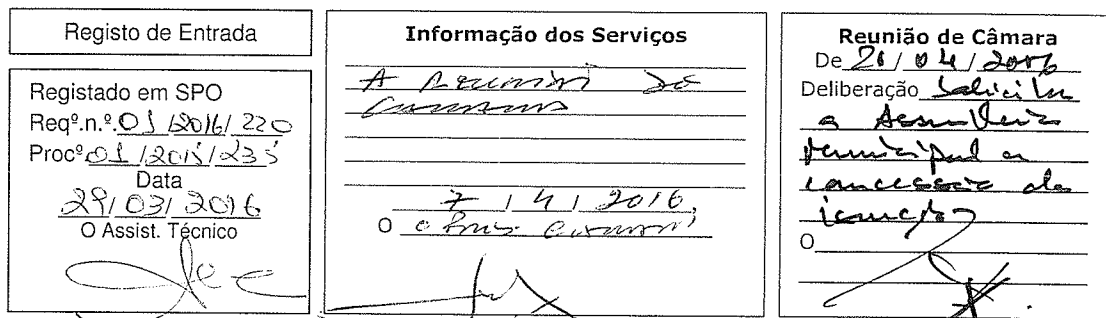 Registo de Entrada
Registado em SPO
Reqº.n.º 01 /2016/ 220
Procº 01 /2015/235
Data
29/03/2016
O Assist. Técnico
Informação dos Serviços
A Reunião de
Camara
7 / 4 / 2016
O
Reunião de Câmara
De 21/04/2016
Deliberação Solicitar
a Assembleia
municipal a
concessão da
isenção
O